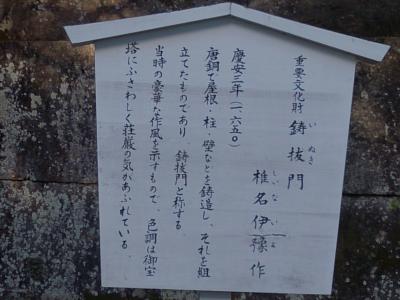 重要文化財 鋳抜門
いぬき
椎名伊豫作
しいないよ
慶安三年(一六五〇)
唐銅で屋根・柱・壁などを鋳造し、それを組
立てたものであり、鋳抜門と称する
当時の豪華な作風を示すもので、色調は御宝
塔にふさわしく荘厳の気があふれている。